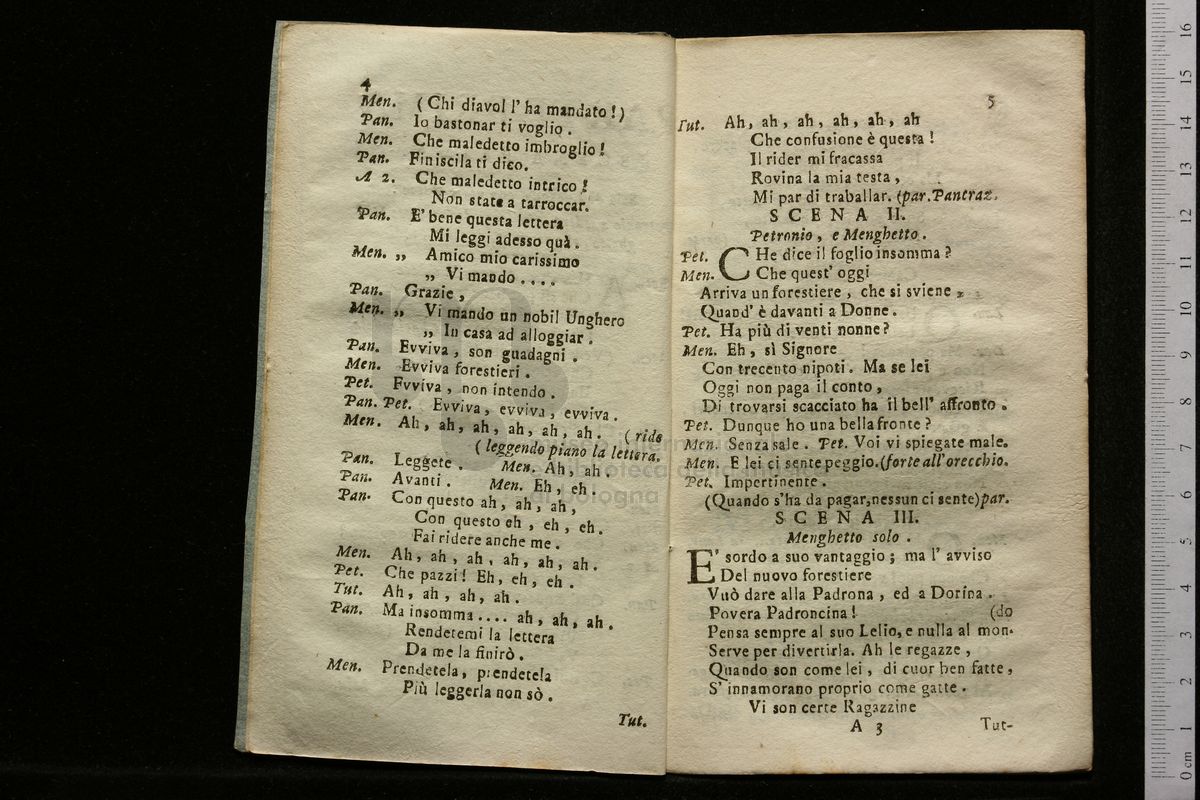 4
Men. (Chi diavol l' ha mandato!)
Pan. Io bastonar ti voglio.
Men. Che maledetto imbroglio!
Pan. Finiscila ti dico.
A 2. Che maledetto intrico!
Non state a tarroccar.
Pan. E' bene questa lettera
Mi leggi adesso quà.
Men. „ Amico mio carissimo
„ Vi mando ....
Pan. Grazie,
Men. „ Vi mando un nobil Unghero
„ In casa ad alloggiar.
Pan. Evviva, son guadagni.
Men. Evviva forestieri.
Pet. Evviva, non intendo.
Pan. Pet. Evviva, evviva, evviva.
Men. Ah, ah, ah, ah, ah, ah. (ride
(leggendo piano la lettera.
Pan. Leggete. Men. Ah, ah.
Pan. Avanti. Men. Eh, eh.
Pan. Con questo ah, ah, ah,
Con questo eh, eh, eh.
Fai ridere anche me.
Men. Ah, ah, ah, ah, ah, ah.
Pet. Che pazzi! Eh, eh, eh.
Tut. Ah, ah, ah, ah.
Pan. Ma insomma .... ah, ah, ah.
Rendetemi la lettera
Da me la finirò.
Men. Prendetela, prendetela
Più leggerla non sò.
Tut.
5
Tut. Ah, ah, ah, ah, ah, ah
Che confusione è questa!
Il rider mi fracassa
Rovina la mia testa,
Mi par di traballar. (par. Pantraz.
SCENA II.
Petronio, e Menghetto.
Pet. CHe dice il foglio insomma?
Men. Che quest' oggi
Arriva un forestiere, che si sviene
Quand' è davanti a Donne.
Pet. Ha più di venti nonne?
Men. Eh, sì Signore
Con trecento nipoti. Ma se lei
Oggi non paga il conto,
Di trovarsi scacciato ha il bell' affronto.
Pet. Dunque ho una bella fronte?
Men. Senza sale. Pet. Voi vi spiegate male.
Men. E lei ci sente peggio. (forte all' orecchio.
Pet. Impertinente.
(Quando s'ha da pagar, nessun ci sente) par.
SCENA III.
Menghetto solo.
E' sordo a suo vantaggio; ma l' avviso
Del nuovo forestiere
Vuò dare alla Padrona, ed a Dorina.
Povera Padroncina! (do
Pensa sempre al suo Lelio, e nulla al mon-
Serve per divertirla. Ah le regazze,
Quando son come lei, di cuor ben fatte,
S' innamorano proprio come gatte.
Vi son certe Ragazzine
A 3 Tut-
0 cm 1 2 3 4 5 6 7 8 9 10 11 12 13 14 15 16